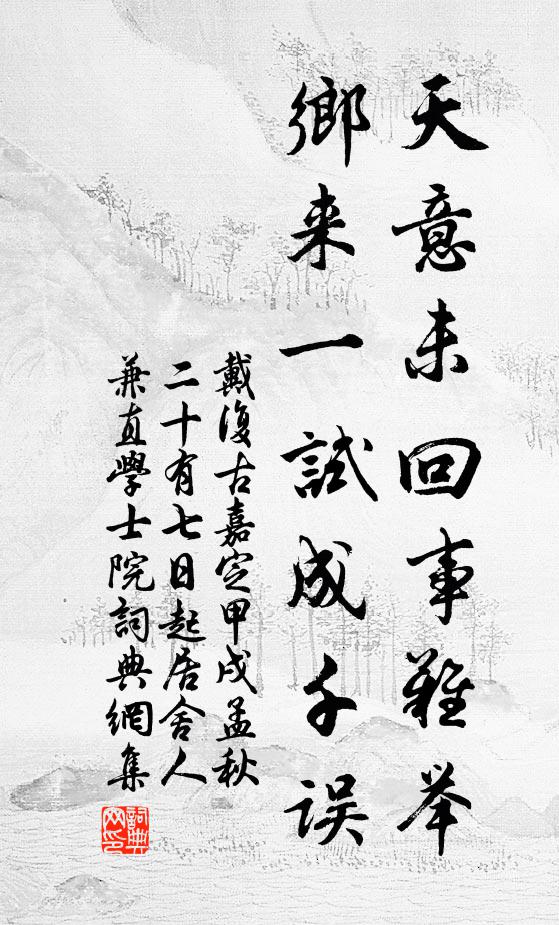 天意未回事難举
鄉来一試成千误
戴復古嘉定甲戌孟秋
二十有七日起居舍人
兼直學士院詞典網集
詞典
网印